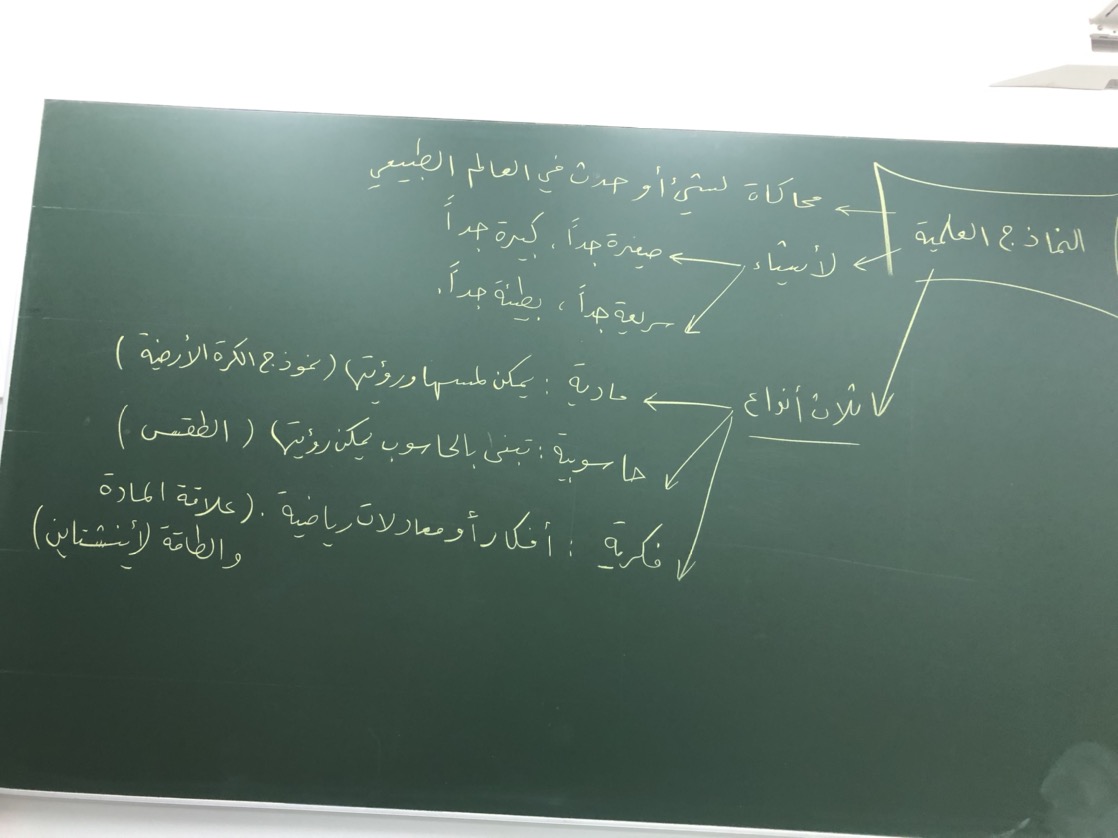 النماذج العلمية
محاكاة لشيئ أو حدث في العالم الطبيعي
لأشياء صغيرة جداً، كبيرة جداً
سريعة جداً، بطيئة جداً.
ثلاث أنواع مادية : يمكن لمسها ورؤيتها (نموذج الكرة الأرضية)
حاسوبية : تبنى بالحاسوب يمكن رؤيتها (الطقس)
فكرية : أفكار أو معادلات رياضية . (علاقة المادة
والطاقة لأينشتاين)